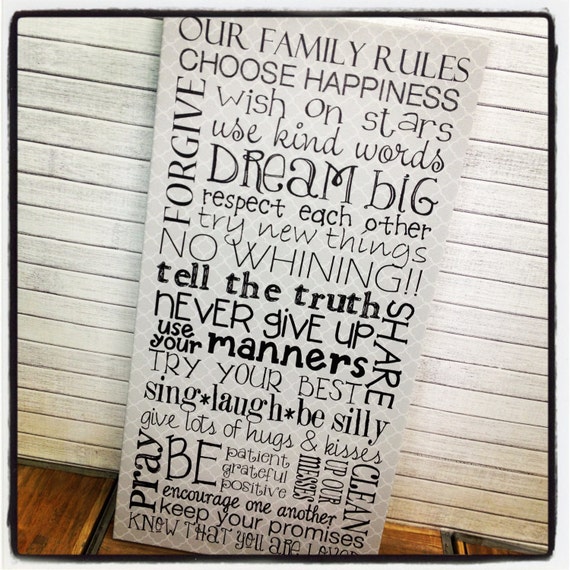 OUR FAMILY RULES
CHOOSE HAPPINESS
FORGIVE
wish on stars
use kind words
DREAM big
respect each other
try new things
NO WHINING!!
tell the truth
SHARE
NEVER give UP
use your manners
TRY YOUR BEST
sing*laugh*be silly
give lots of hugs & kisses
Pray
BE
patient
grateful
positive
CLEAN
UP OUR
MESSES
encourage one another
keep your promises
KNOW THAT YOU ARE LOVED